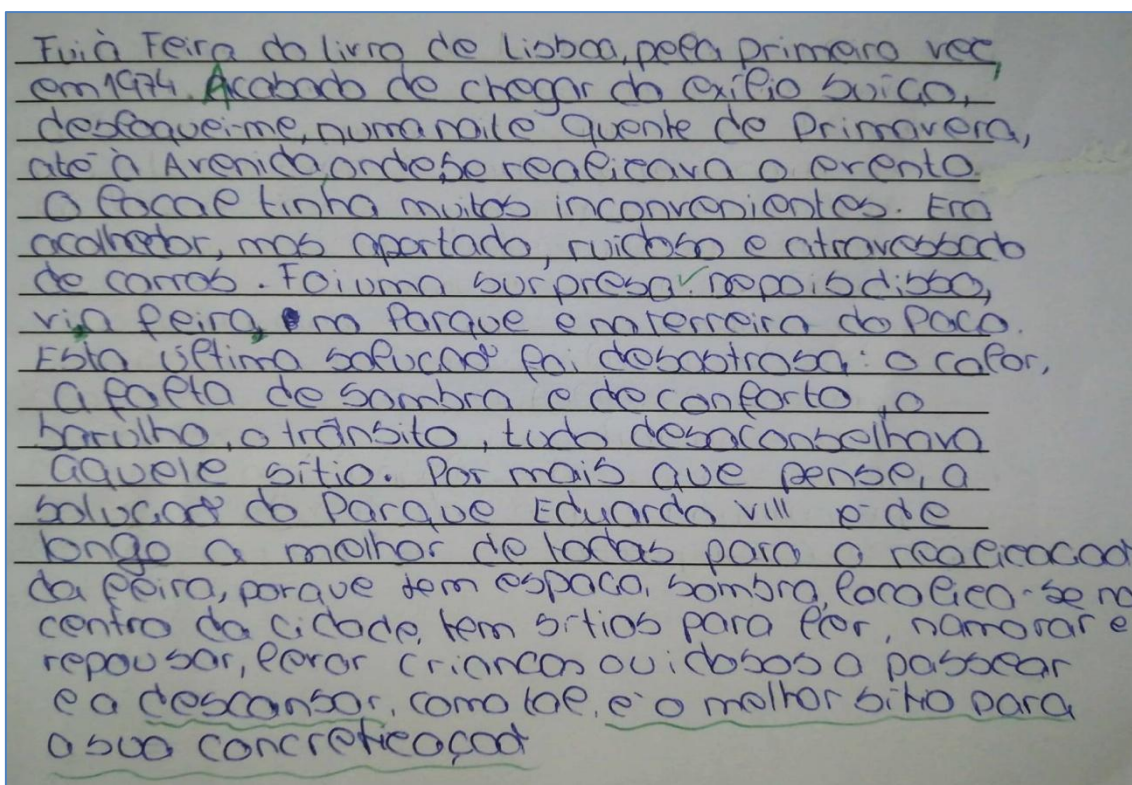 Fui à Feira do livro de Lisboa, pela primeira vez,
em 1974. Acabado de chegar do exílio suíço,
desloquei-me, numa noite quente de Primavera,
até à Avenida, onde se realizava o evento.
O local tinha muitos inconvenientes. Era
acolhedor, mas apertado, ruidoso e atravessado
de carros. Foi uma surpresa. Depois disso,
vi a feira, no Parque e no Terreiro do Paço.
Esta última solução foi desastrosa: o calor,
a falta de sombra e de conforto, o
barulho, o trânsito, tudo desaconselhava
aquele sítio. Por mais que pense, a
solução do Parque Eduardo VIII é de
longe a melhor de todas para a realização
da feira, porque tem espaço, sombra, localiza-se no
centro da cidade, tem sítios para ler, namorar e
repousar, levar crianças ou idosos a passear
e a descansar, como tal, é o melhor sítio para
a sua concretização